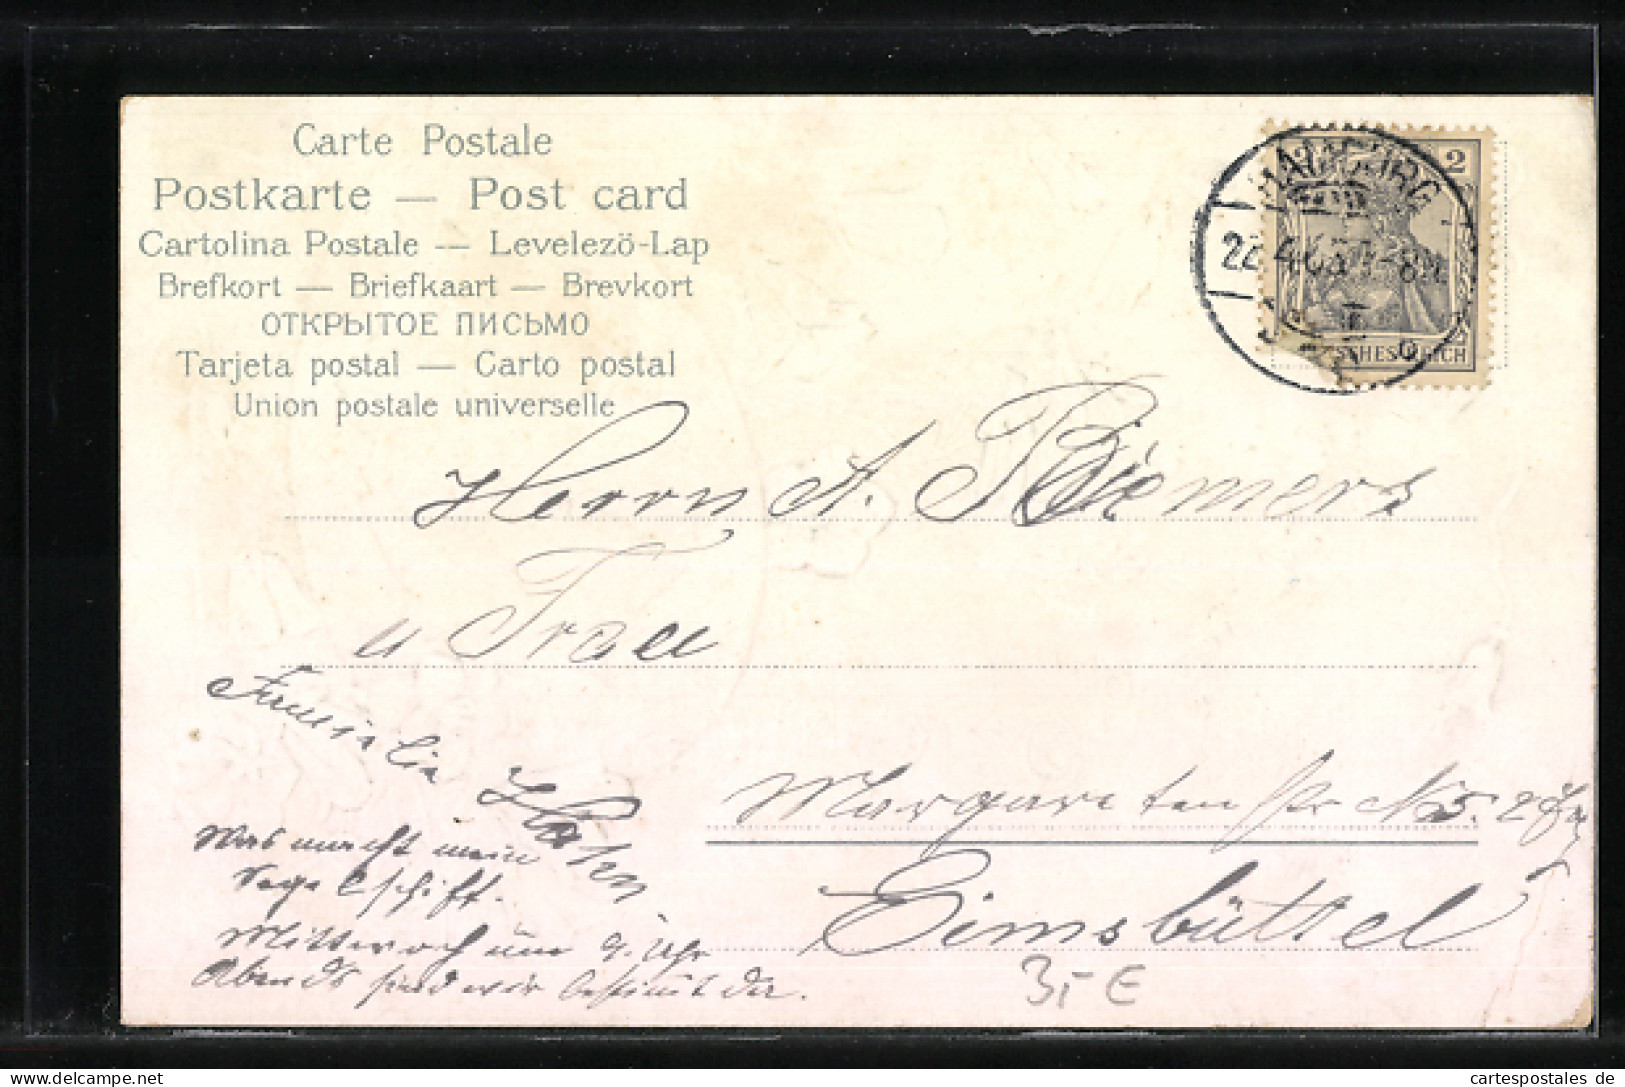 Carte Postale
Postkarte — Post card
Cartolina Postale -— Levelezö-Lap
Brefkort — Briefkaart — Brevkort
ОТКРЫТОЕ ПИСЬМО
Tarjeta postal — Carto postal
Union postale universelle
HAMBURG
22.4.05 7-8N.
2
2
DEUTSCHES REICH
Herrn A. Riemers
u Frau
Margareten str No 5. 2 Etg
Eimsbüttel
Familie
Was macht mein
Segelschiff.
Mittwoch um 9. Uhr
Abends sind wir bestimt da.
3,- E
www.delcampe.net
cartespostales_de